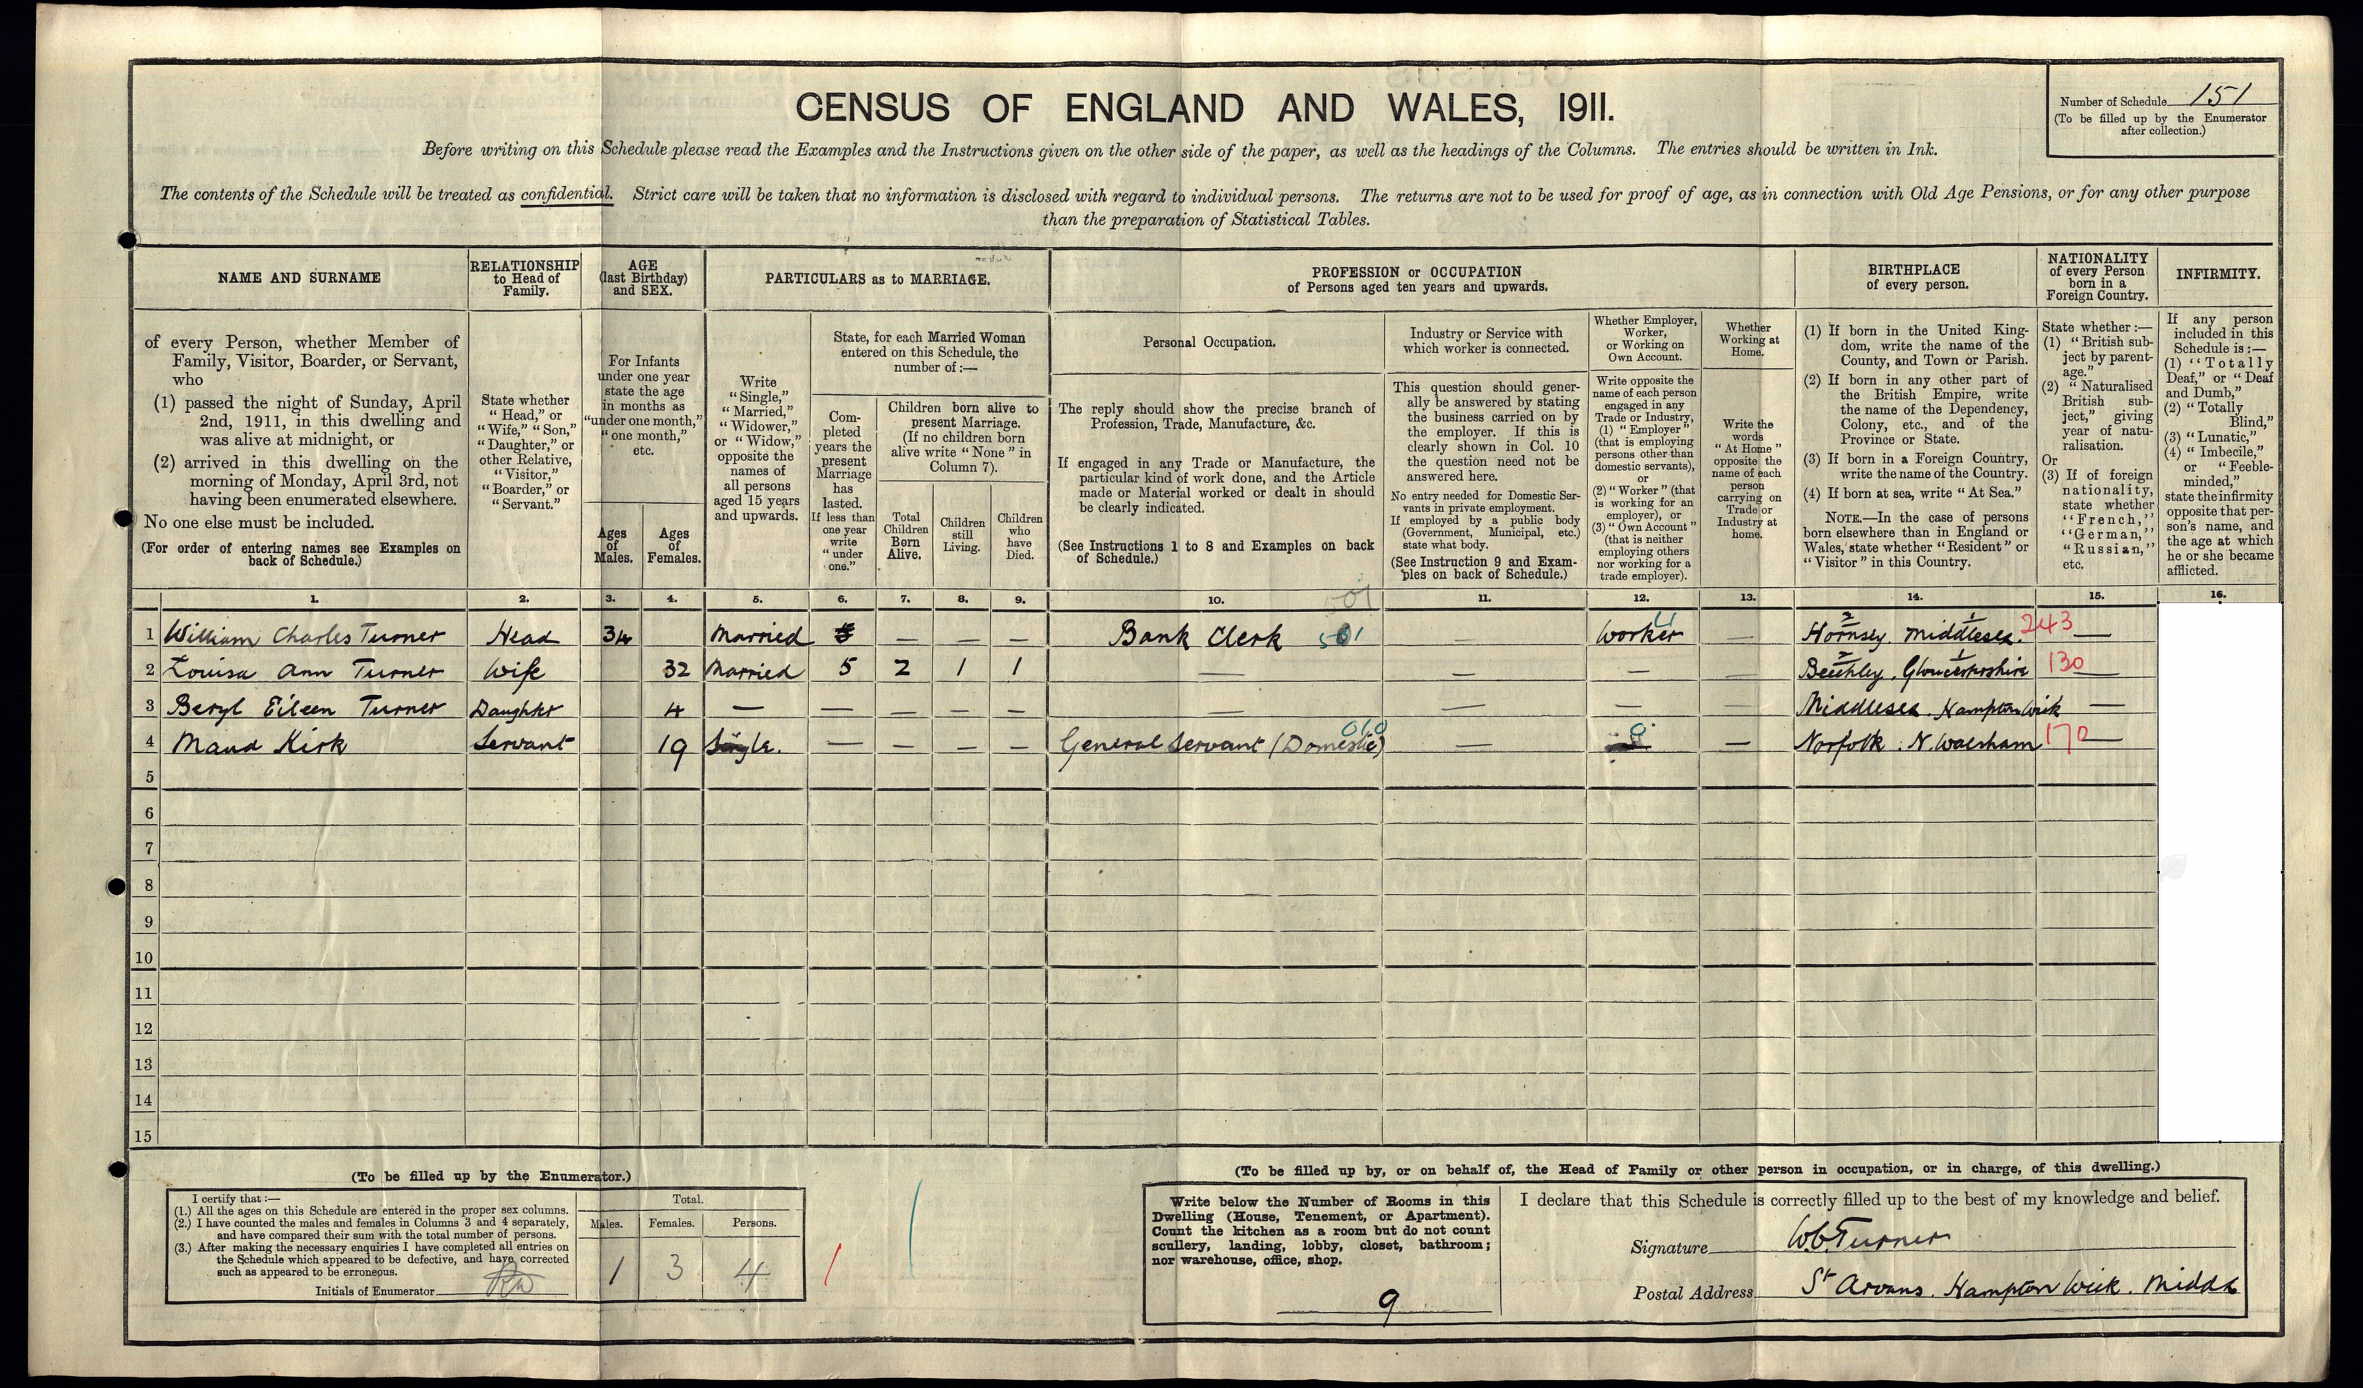 CENSUS OF ENGLAND AND WALES, 1911.
Number of Schedule 151
(To be filled up by the Enumerator
after collection.)
Before writing on this Schedule please read the Examples and the Instructions given on the other side of the paper, as well as the headings of the Columns. The entries should be written in Ink.
The contents of the Schedule will be treated as confidential. Strict care will be taken that no information is disclosed with regard to individual persons. The returns are not to be used for proof of age, as in connection with Old Age Pensions, or for any other purpose
than the preparation of Statistical Tables.
NAME AND SURNAME
of every Person, whether Member of
Family, Visitor, Boarder, or Servant,
who
(1) passed the night of Sunday, April
2nd, 1911, in this dwelling and
was alive at midnight, or
(2) arrived in this dwelling on the
morning of Monday, April 3rd, not
having been enumerated elsewhere.
No one else must be included.
(For order of entering names see Examples on
back of Schedule.)
RELATIONSHIP
to Head of
Family.
State whether
"Head," or
"Wife," "Son,"
"Daughter," or
other Relative,
"Visitor,"
"Boarder," or
"Servant."
AGE
(last Birthday)
and SEX.
For Infants
under one year
state the age
in months as
"under one month,"
"one month,"
etc.
Ages
of
Males.
Ages
of
Females.
PARTICULARS as to MARRIAGE.
Write
"Single,"
"Married,"
"Widower,"
or "Widow,"
opposite the
names of
all persons
aged 15 years
and upwards.
State, for each Married Woman
entered on this Schedule, the
number of :—
Com-
pleted
years the
present
Marriage
has
lasted.
If less than
one year
write
"under
one."
Children born alive to
present Marriage.
(If no children born
alive write "None" in
Column 7).
Total
Children
Born
Alive.
Children
still
Living.
Children
who
have
Died.
PROFESSION or OCCUPATION
of Persons aged ten years and upwards.
Personal Occupation.
The reply should show the precise branch of
Profession, Trade, Manufacture, &c.
If engaged in any Trade or Manufacture, the
particular kind of work done, and the Article
made or Material worked or dealt in should
be clearly indicated.
(See Instructions 1 to 8 and Examples on back
of Schedule.)
Industry or Service with
which worker is connected.
This question should gener-
ally be answered by stating
the business carried on by
the employer. If this is
clearly shown in Col. 10
the question need not be
answered here.
No entry needed for Domestic Ser-
vants in private employment.
If employed by a public body
(Government, Municipal, etc.)
state what body.
(See Instruction 9 and Exam-
ples on back of Schedule.)
Whether Employer,
Worker,
or Working on
Own Account.
Write opposite the
name of each person
engaged in any
Trade or Industry,
(1) "Employer"
(that is employing
persons other than
domestic servants),
or
(2) "Worker" (that
is working for an
employer), or
(3) "Own Account"
(that is neither
employing others
nor working for a
trade employer).
Whether
Working at
Home.
Write the
words
"At Home"
opposite the
name of each
person
carrying on
Trade or
Industry at
home.
BIRTHPLACE
of every person.
(1) If born in the United King-
dom, write the name of the
County, and Town or Parish.
(2) If born in any other part of
the British Empire, write
the name of the Dependency,
Colony, etc., and of the
Province or State.
(3) If born in a Foreign Country,
write the name of the Country.
(4) If born at sea, write "At Sea."
NOTE.—In the case of persons
born elsewhere than in England or
Wales, state whether "Resident" or
"Visitor" in this Country.
NATIONALITY
of every Person
born in a
Foreign Country.
State whether :—
(1) "British sub-
ject by parent-
age."
(2) "Naturalised
British sub-
ject," giving
year of natu-
ralisation.
Or
(3) If of foreign
nationality,
state whether
"French,"
"German,"
"Russian,"
etc.
INFIRMITY.
If any person
included in this
Schedule is :—
(1) "Totally
Deaf," or "Deaf
and Dumb,"
(2) "Totally
Blind,"
(3) "Lunatic,"
(4) "Imbecile,"
or "Feeble-
minded,"
state the infirmity
opposite that per-
son's name, and
the age at which
he or she became
afflicted.
1. 2. 3. 4. 5. 6. 7. 8. 9. 10. 11. 12. 13. 14. 15. 16.
1 William Charles Turner Head 34 Married — — — Bank Clerk — Worker — Hornsey. Middlesex. 243 —
2 Louisa Ann Turner Wife 32 Married 5 2 1 1 — — — — Beachley, Gloucestershire 130 —
3 Beryl Eileen Turner Daughter 4 — — — — — — — — — Middlesex. Hampton Wick —
4 Maud Kirk Servant 19 Single. — — — — General Servant (Domestic) 010 — — Norfolk. N. Walsham 170 —
5
6
7
8
9
10
11
12
13
14
15
(To be filled up by the Enumerator.)
I certify that :—
(1.) All the ages on this Schedule are entered in the proper sex columns.
(2.) I have counted the males and females in Columns 3 and 4 separately,
and have compared their sum with the total number of persons.
(3.) After making the necessary enquiries I have completed all entries on
the Schedule which appeared to be defective, and have corrected
such as appeared to be erroneous.
Initials of Enumerator
Total.
Males. Females. Persons.
1 3 4
(To be filled up by, or on behalf of, the Head of Family or other person in occupation, or in charge, of this dwelling.)
Write below the Number of Rooms in this
Dwelling (House, Tenement, or Apartment).
Count the kitchen as a room but do not count
scullery, landing, lobby, closet, bathroom;
nor warehouse, office, shop.
9
I declare that this Schedule is correctly filled up to the best of my knowledge and belief.
Signature W.C. Turner
Postal Address St Arvans. Hampton Wick. Middx